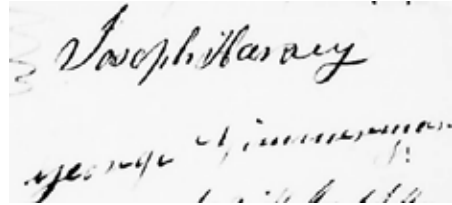 Joseph Harvey
George Zimmerman